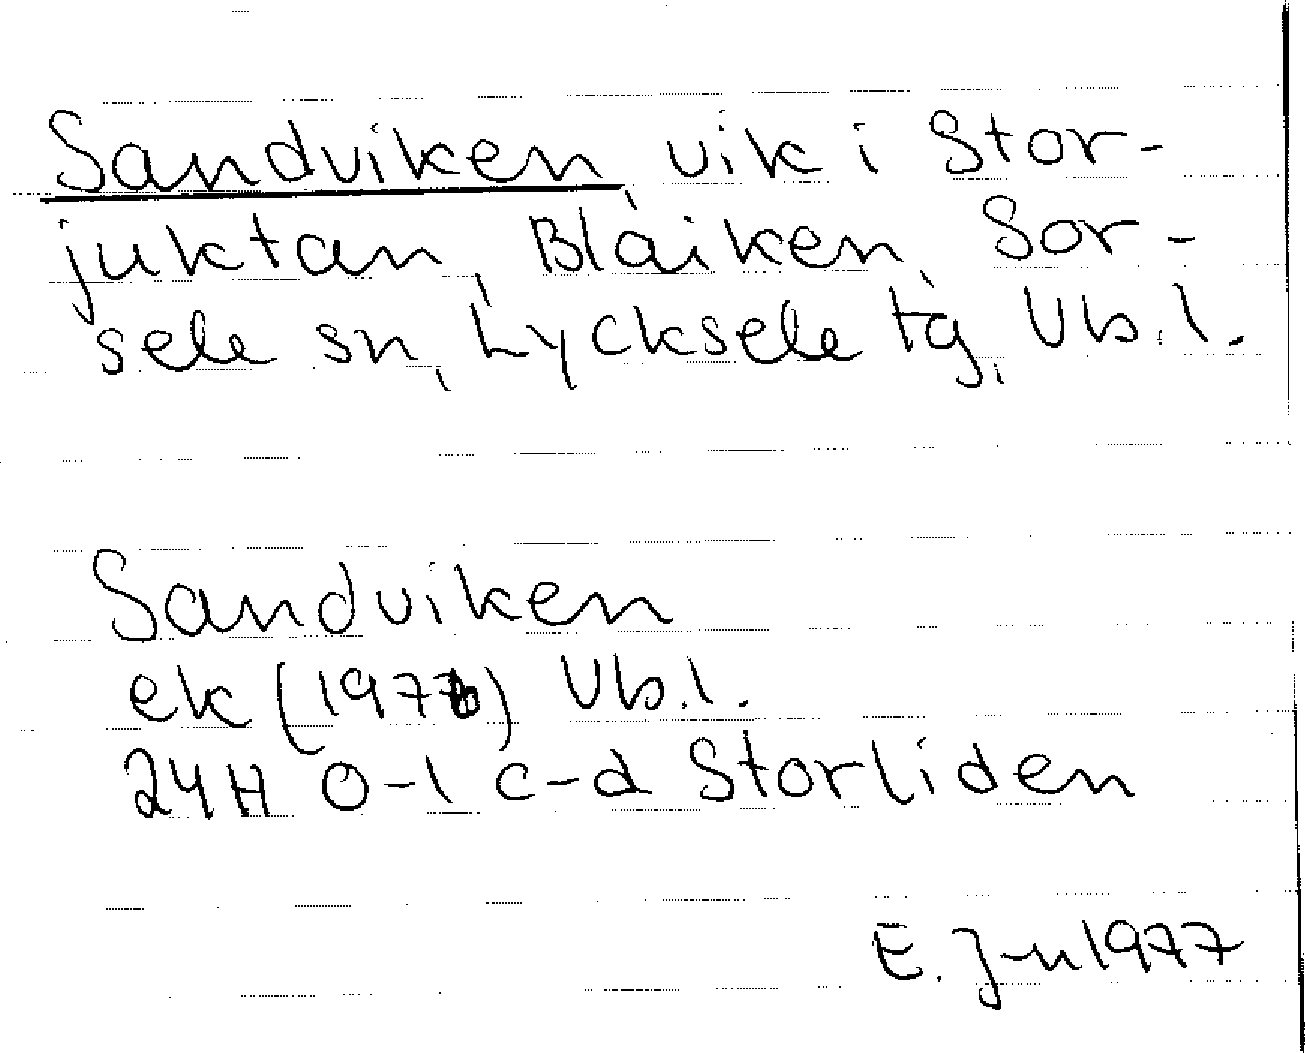 Sandviken, vik i Stor-
juktan, Blaiken, Sor-
sele sn, Lycksele tg, Vb.l.
Sandviken
ek (1976) Vb.l.
24H 0-1 c-d Storliden
E. J-n 1977